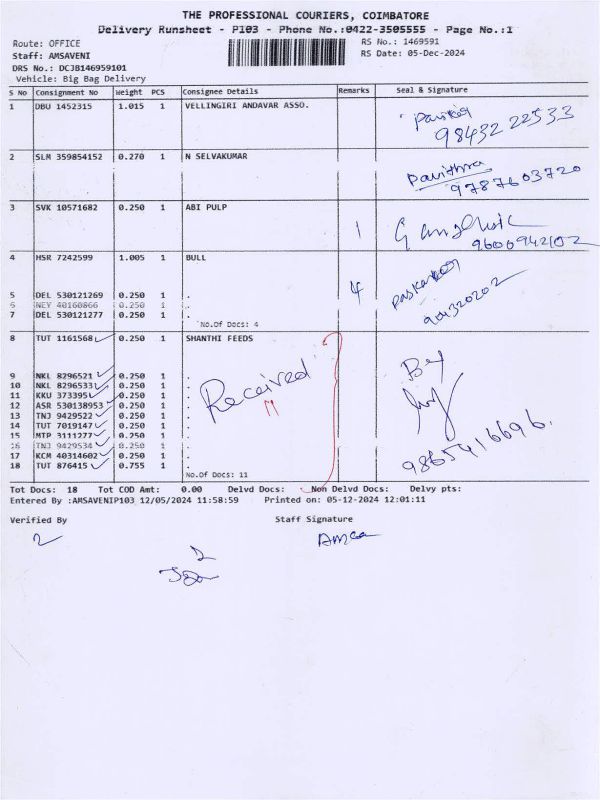 THE PROFESSIONAL COURIERS, COIMBATORE
Delivery Runsheet - P103 - Phone No.:0422-3505555 - Page No.:1
Route: OFFICE
RS No.: 1469591
Staff: AMSAVENI
RS Date: 05-Dec-2024
DRS No.: DCJB146959101
Vehicle: Big Bag Delivery
S No Consignment No Weight PCS Consignee Details Remarks Seal & Signature
1 DBU 1452315 1.015 1 VELLINGIRI ANDAVAR ASSO.
98432 22533
2 SLM 359854152 0.270 1 N SELVAKUMAR
Pavithra
9787603720
3 SVK 10571682 0.250 1 ABI PULP
1
9600942102
4 HSR 7242599 1.005 1 BULL
4
5 DEL 530121269 0.250 1 .
6 NEY 40160866 0.250 1 .
7 DEL 530121277 0.250 1 .
No.Of Docs: 4
8 TUT 1161568 0.250 1 SHANTHI FEEDS
9 NKL 8296521 0.250 1 .
10 NKL 8296533 0.250 1 .
11 KKU 373395 0.250 1 .
12 ASR 530138953 0.250 1 .
13 TNJ 9429522 0.250 1 .
14 TUT 7019147 0.250 1 .
15 MTP 3111277 0.250 1 .
16 TNJ 9429534 0.250 1 .
17 KCM 40314602 0.250 1 .
18 TUT 876415 0.755 1 .
Received
11
9865416696.
No.Of Docs: 11
Tot Docs: 18 Tot COD Amt: 0.00 Delvd Docs: Non Delvd Docs: Delvy pts:
Entered By :AMSAVENIP103 12/05/2024 11:58:59 Printed on: 05-12-2024 12:01:11
Verified By Staff Signature